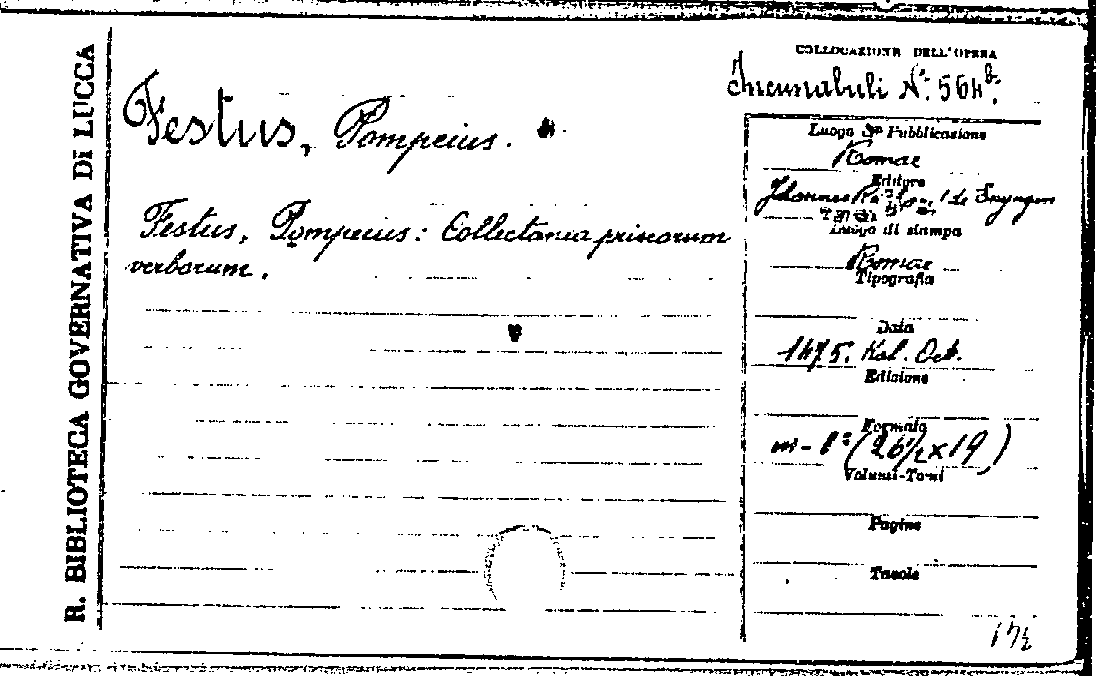 R. BIBLIOTECA GOVERNATIVA DI LUCCA
Festus, Pompeius.
Festus, Pompeius: Collectania priscorum
verborum.
COLLOCAZIONE DELL'OPERA
Incunabuli N.º 564b.
Luogo di Pubblicazione
Romae
Editore
Johannes de
Luogo di stampa
Romae
Tipografia
Data
1475. Kal. Oct.
Edizione
Formato
in-8º (26½ x 19)
Volumi-Tomi
Pagine
Tavole